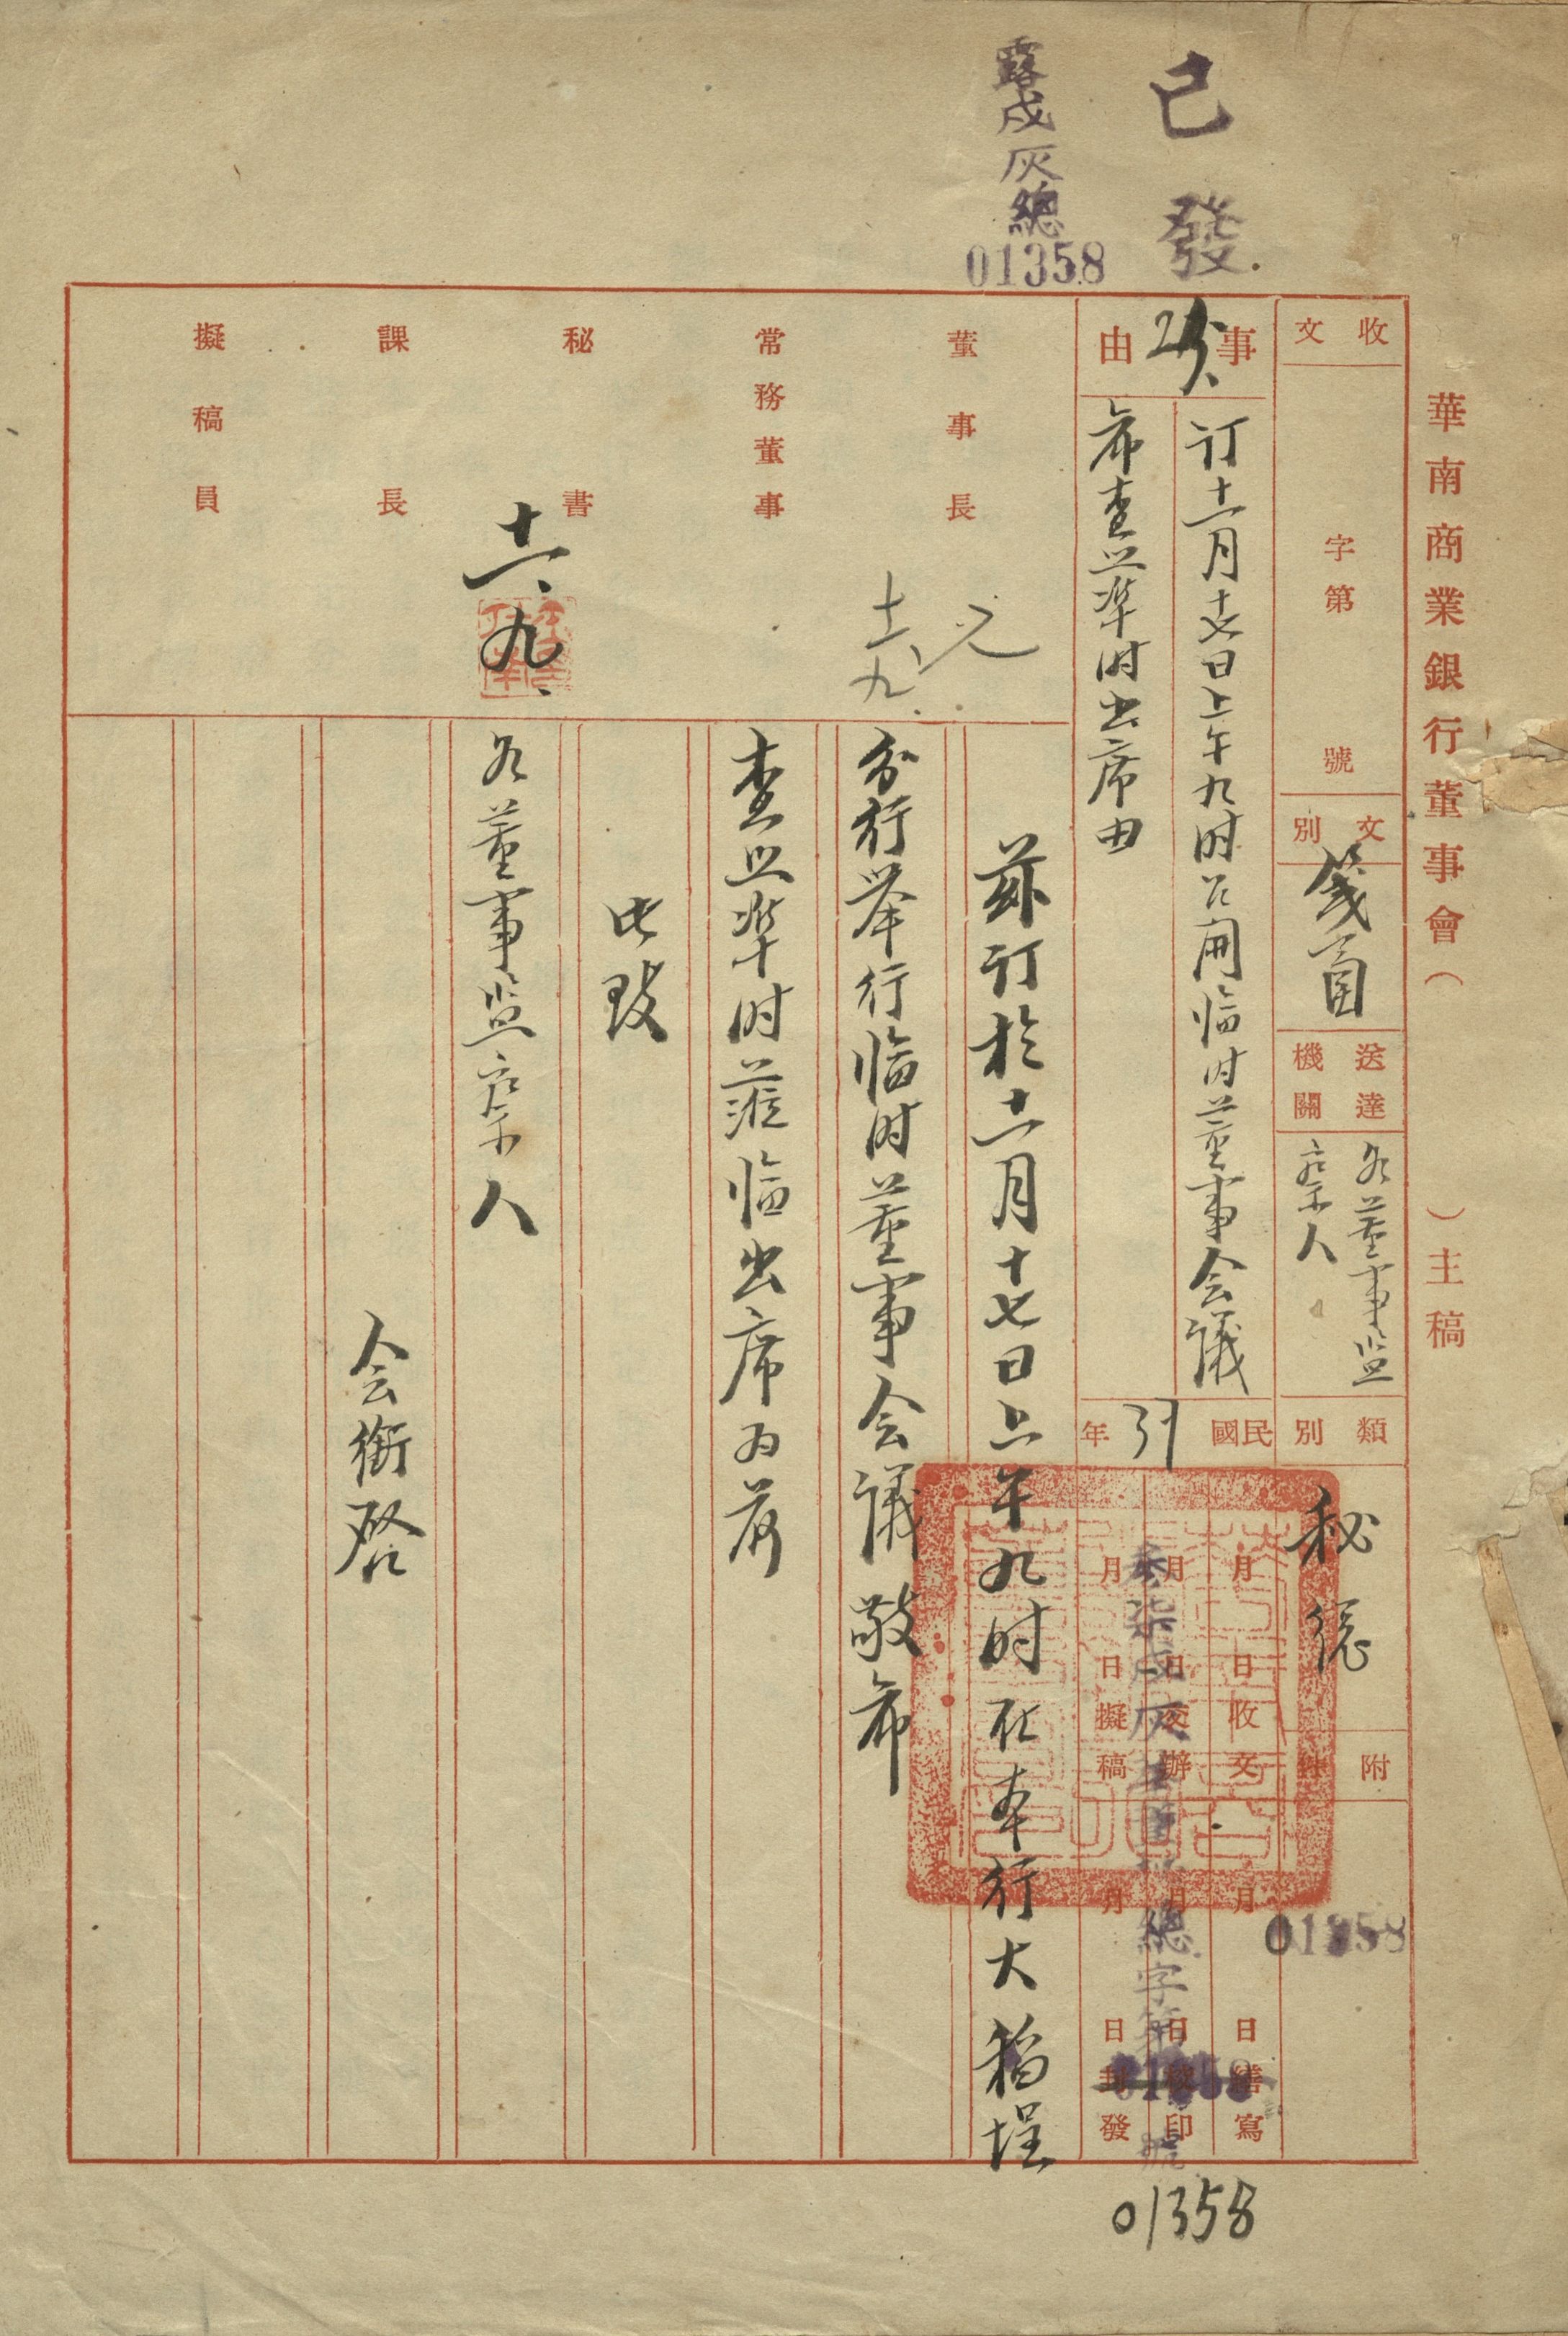 已發
01358
華南商業銀行董事會（　）主稿
收文
字第　號
文別
箋函
送達機關
各董事監
察人
類別
秘
附件
01358
事由
訂十一月十七日上午九时召開临时董事会議
希查照準时出席由
民國37年
月　日收文
月　日交辦
月　日擬稿
月　日繕寫
月　日校印
月　日封發
柒戌灰
總字第
號
01358
董事長
常務董事
秘書
課長
擬稿員
十一、九
十一、九、
兹订於十一月十七日上午九时在本行大稻埕
分行举行临时董事会議敬希
查照準时蒞临出席为荷
此致
各董事监察人
会銜啓